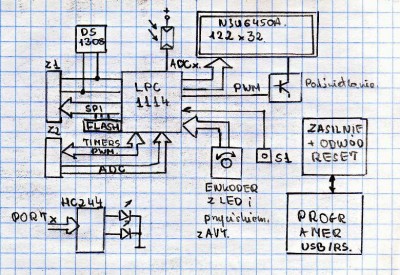 DS
1308
NJU6450A.
122 x 32
Z1
ADCx.
LPC
1114
PWM
Podświetlanie
SPI
FLASH
Z2
TIMERS
PWM.
ADC
S1
ZASILNIE
+ ODWOD
RESET
ENKODER
Z LED i
przyciskiem.
z AVT.
HC244
PORTx
PROGR
AMER
USB/RS.